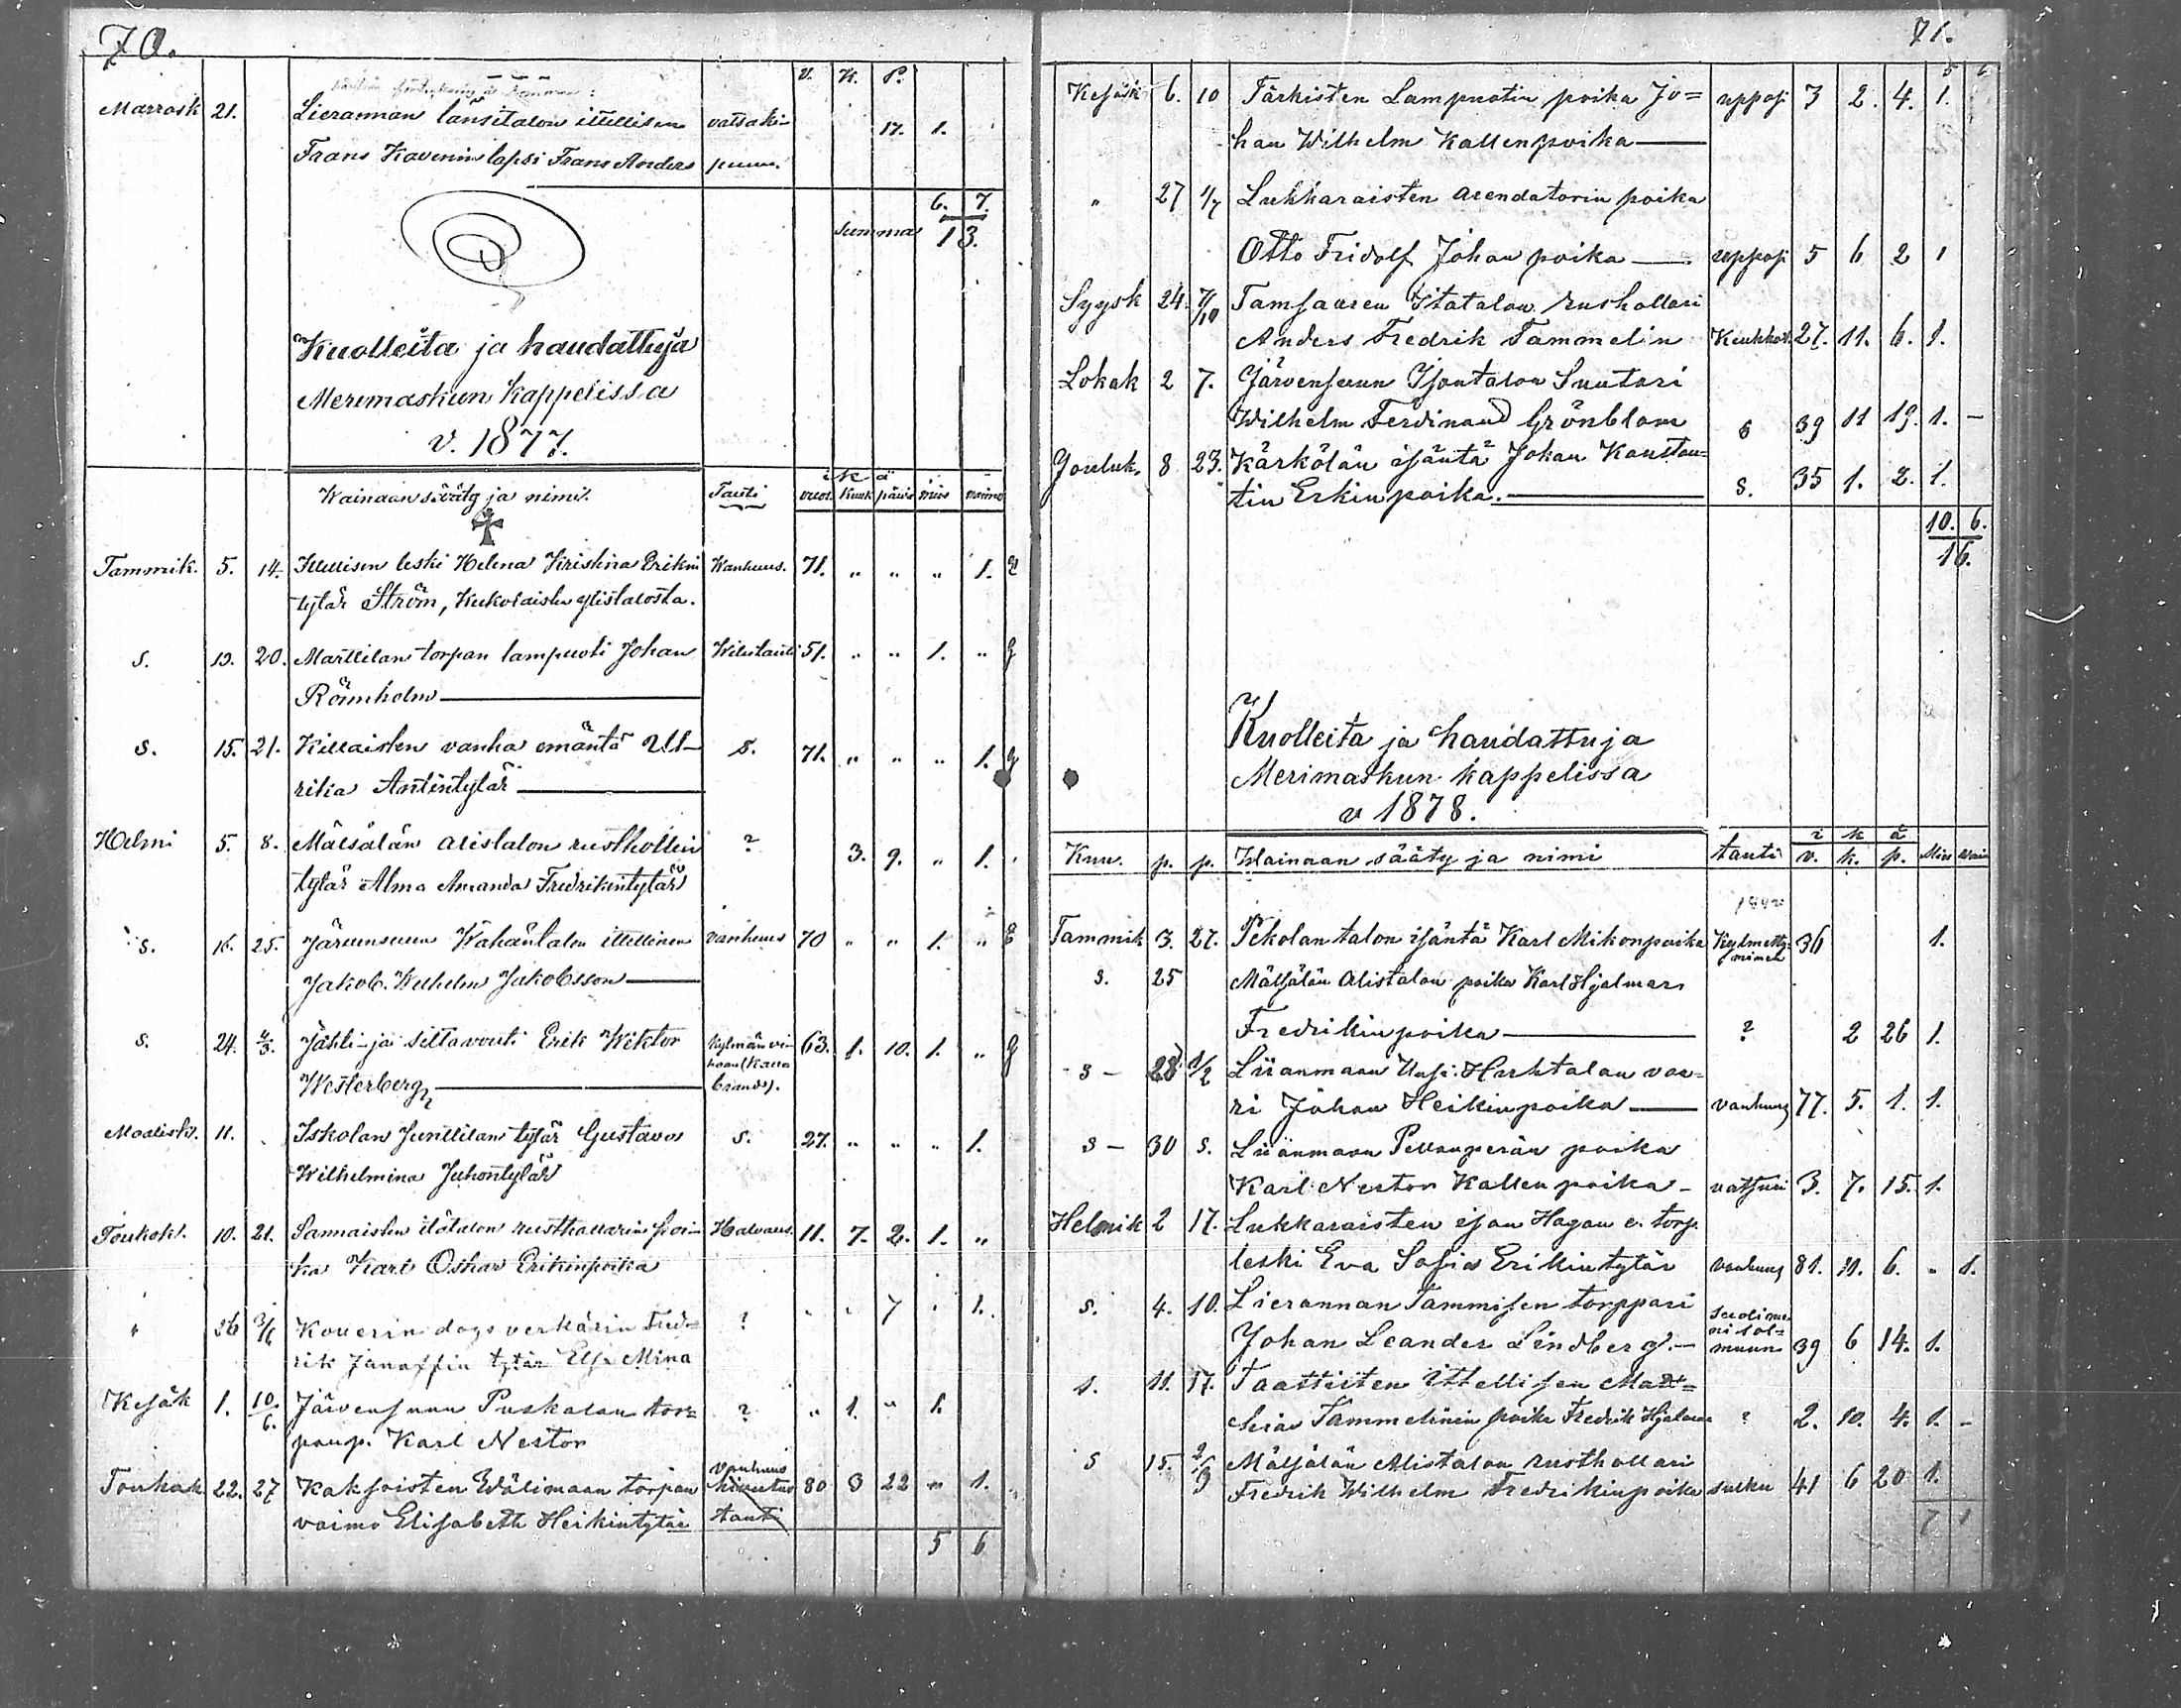 70.
v. K. P.
Marrask 21. Lierannan länsitalon ittellisen vatsaki- 17. 1.
Frans Kavenin lapsi Frans Anders puuu.
6. 7.
Summa 13.
Kuolleita ja haudattuja
Merimaskun kappelissa
v. 1877.
i k ä
Wainaan sääty ja nimi. Tauti vuot. kuuk päiv. mies vaimo
Tammik. 5. 14. Ittellisen leski Helena Kristina Erikin Wanhuus. 71. " " " 1.
tytär Ström, Kukolaisten ylistalosta.
S. 13. 20. Marttilan torpan lampuoti Johan 51. " " 1. "
Rönnholm
S. 15. 21. Killaisten vanha emäntä Ul- s. 71. " " " 1.
rika Antintytär
Helmi 5. 8. Mälsälän alistalon rusthollin ? 3. 9. " 1.
tytär Alma Amanda Fredrikintytär
s. 16. 25. Järvensuun Wähäntalon ittellinen vanhuus 70 " " 1. "
Jakob Wilhelm Jakobsson
s. 24. 4/3. Jahti- ja siltavouti Erik Wiktor Kylmän vi- 63. 1. 10. 1. "
Westerberg
Maalisk. 11. Iskolan Junttilan tytär Gustava s. 27. " " " 1.
Wilhelmina Juhontytär
Toukok. 10. 21. Sannaisten itätalon rusthollarin poi- Halvaus. 11. 7. 2. 1. "
ka Karl Oskar Erikinpoika
" 26 3/6 Kouerin dagsverkärin Fred- ? " " 7 " 1.
rik tytär Elsa Mina
Kesäk 1. 10/6. Järvensuun Puskalan tor- ? " 1. " 1.
panp. Karl Nestor
Toukok 22. 27 Kaksoisten Wälimaan torpan vanhuus 80 3 22 " 1.
vaimo Elisabeth Heikintytär tauti
5 6
71.
5 6
Kesäk 6. 10 Tärkisten Lampuotin poika Jo= upposi 3 2. 4. 1.
han Wilhelm Kallenpoika
" 27 1/7 Lukkaraisten arendatorin poika
Otto Fridolf Johan poika upposi 5 6 2 1
Syysk 24. 7/10 Tamsaaren Itatalon rushollari
Anders Fredrik Tammelin Keuhkot. 27. 11. 6. 1.
Lokak 2 7. Järvensuun Isontalon Suutari
Wilhelm Ferdinand Grönblom s 39 11 19. 1. –
Jouluk. 8 23. Kärkölän isäntä Johan Konstan=
tin Erkinpoika. s. 35 1. 2. 1.
10. 6.
16.
Kuolleita ja haudattuja
Merimaskun kappelissa
v 1878.
i k ä
Kuu. p. p. Wainaan sääty ja nimi tauti v. k. p. Mies
Tammik 3. 27. Pekolan talon isäntä Karl Mikonpoika Kylmetty= minen 36 1.
s. 25 Mälsälän Alistalon poika Karl Hjalmar
Fredrikin poika ? 2 26 1.
s – 28 1/2 Liianmaan Uusi-Huhtalan vaa=
ri Johan Heikinpoika vanhuus 77. 5. 1. 1.
s – 30 s. Liianmaan Pellonperän poika
Karl Nestor Kallen poika – 3. 7. 15. 1.
Helmik 2 17. Lukkaraisten ison Hagan e. torp.
leski Eva Sofia Erikintytär vanhuus 81. 11. 6. " 1.
s. 4. 10. Lierannan Tammisen torppari
Johan Leander Lindberg. – 39 6 14. 1.
s. 11. 17. Taattisten ittellisen Mat=
Tammelinin poika Fredrik Hjalmar ? 2. 10. 4. 1. –
s 15. 2/3 Mälsälän Alistalon rusthollari
Fredrik Wilhelm Fredrikinpoika 41 6 20 1.
7 1